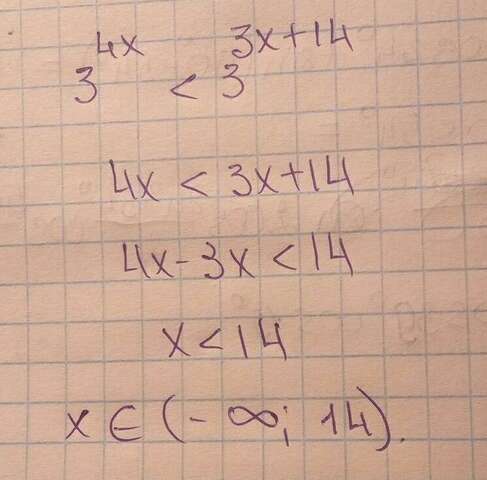 3^{4x} < 3^{3x+14}
4x < 3x+14
4x-3x < 14
x < 14
x ∈ (-∞; 14).